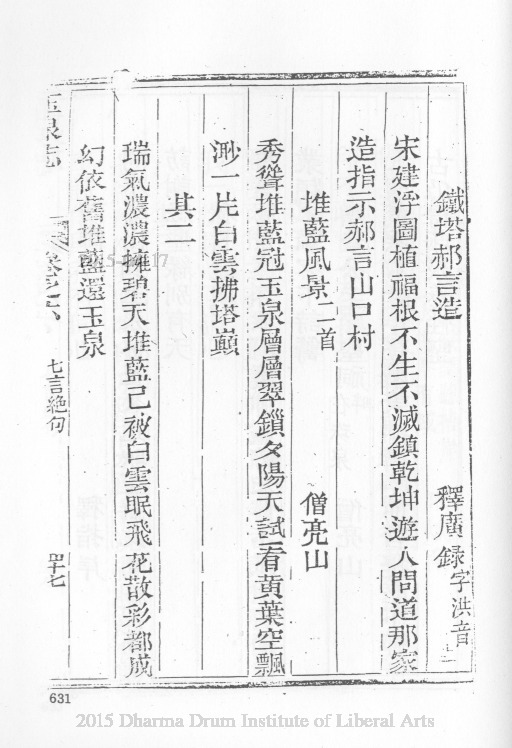 鐵塔郝言造　釋廣錄字洪音
宋建浮圖植福根不生不滅鎮乾坤遊人問道那家
造指示郝言山口村
堆藍風景二首　僧亮山
秀聳堆藍冠玉泉層層翠鎖夕陽天試看黃葉空飄
渺一片白雲拂塔巔
其二
瑞氣濃濃擁碧天堆藍已被白雲眠飛花散彩都成
幻依舊堆藍還玉泉
玉泉志　卷之六　七言絕句　四十七
631
2015 Dharma Drum Institute of Liberal Arts